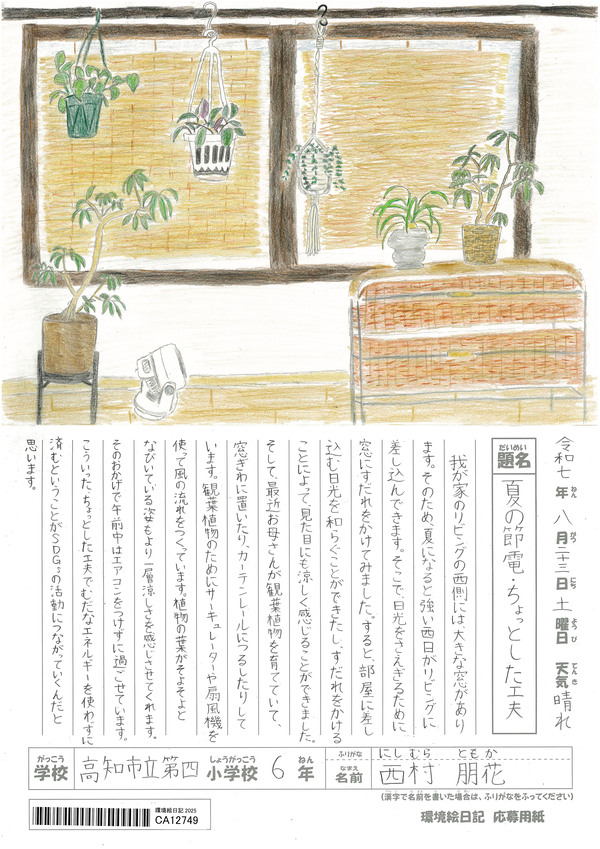 令和七年八月二十三日土曜日 天気晴れ
ねん がつ にち ようび てんき
だいめい
題名 夏の節電・ちょっとした工夫
我が家のリビングの西側には、大きな窓があり
ます。そのため、夏になると強い西日がリビングに
差し込んできます。そこで、日光をさえぎるために、
窓にすだれをかけてみました。すると、部屋に差し
込む日光を和らぐことができたし、すだれをかける
ことによって、見た目にも涼しく感じることができました。
そして、最近お母さんが観葉植物を育てていて、
窓ぎわに置いたり、カーテンレールにつるしたりして
います。観葉植物のためにサーキュレーターや扇風機を
使って風の流れをつくっています。植物の葉がそよそよと
なびいている姿もより一層涼しさを感じさせてくれます。
そのおかげで午前中はエアコンをつけずに過ごせています。
こういった、ちょっとした工夫でむだなエネルギーを使わずに
済むということがSDGsの活動につながっていくんだと
思います。
がっこう しょうがっこう ねん
学校 高知市立第四小学校 6年
ふりがな にしむら ともか
なまえ
名前 西村 朋花
(漢字で名前を書いた場合は、ふりがなをふってください)
環境絵日記 2025
CA12749
環境絵日記 応募用紙